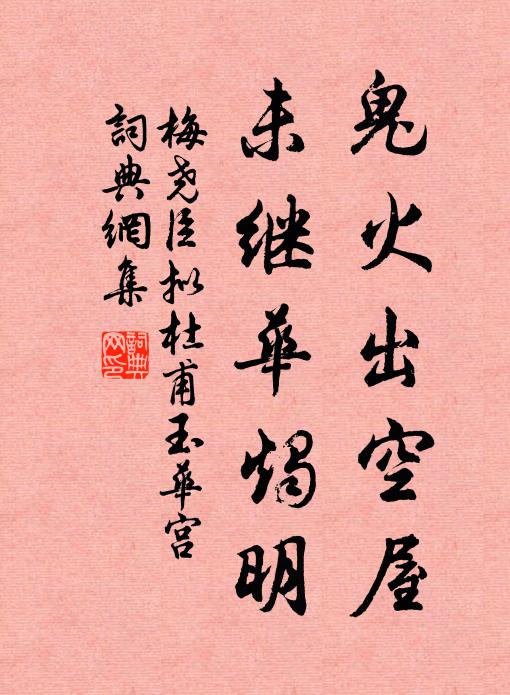 鬼火出空屋
未继華燭明
梅尧臣拟杜甫玉華宫
詞典網集
詞典
网印